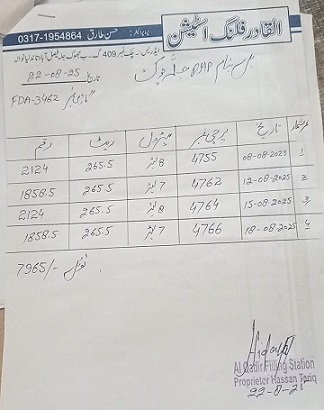 القادر فلنگ اسٹیشن
پروپرائیٹر: حسن طارق 0317-1954864
چک نمبر 409 گ ب
تاریخ 22-08-25
بل بنام PAP
گاڑی نمبر FDA-3462
نمبرشمار تاریخ پرچی نمبر پیٹرول ریٹ رقم
1 08-08-2025 4755 8 لیٹر 265.5 2124
2 12-08-2025 4762 7 لیٹر 265.5 1858.5
3 15-08-2025 4764 8 لیٹر 265.5 2124
4 18-08-2025 4766 7 لیٹر 265.5 1858.5
ٹوٹل 7965/-
Al Qadir Filling Station
Proprietor Hassan Tariq
22-8-25